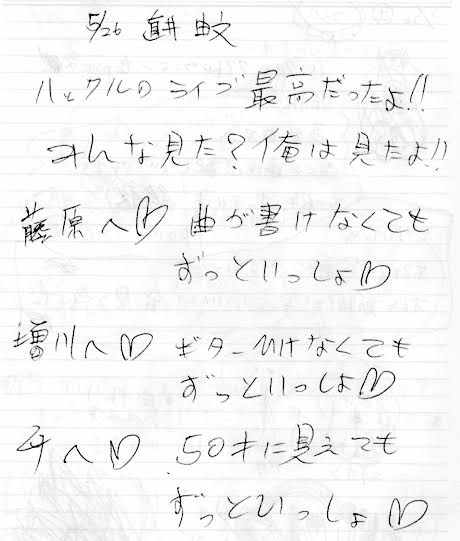 5/26 直井由文
ハックルのライブ最高だったよ!!
みんな見た?俺は見たよ!!
藤原へ♡ 曲が書けなくても
ずっといっしょ♡
増川へ♡ ギターひけなくても
ずっといっしょ♡
チへ♡ 50才に見えても
ずっといっしょ♡